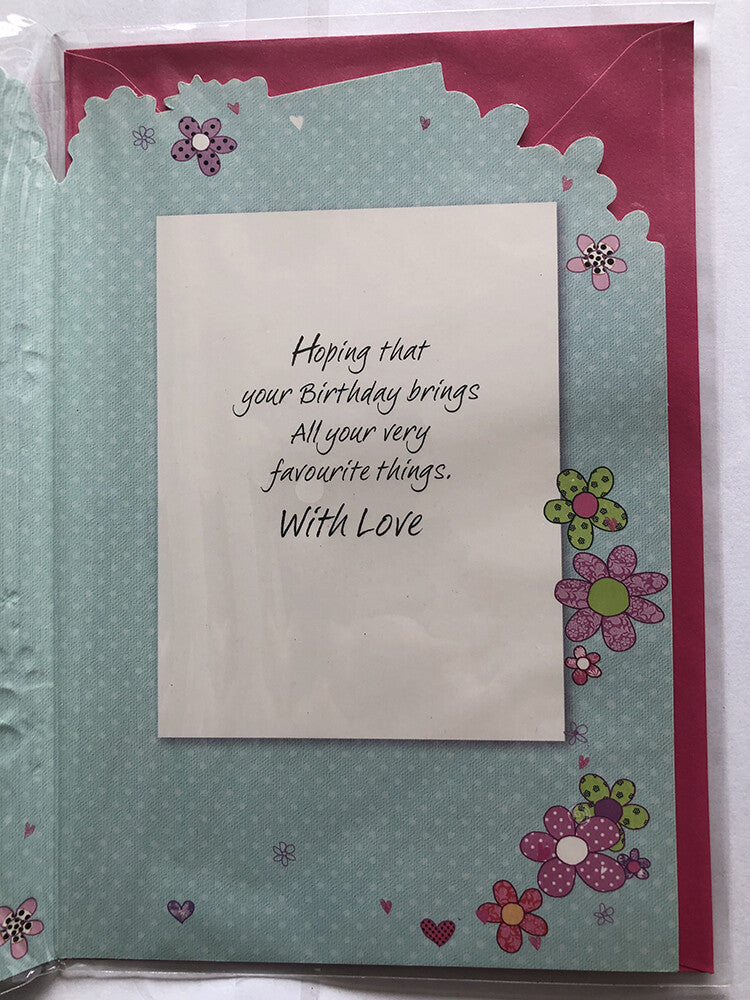 Hoping that
your Birthday brings
All your very
favourite things.
With Love